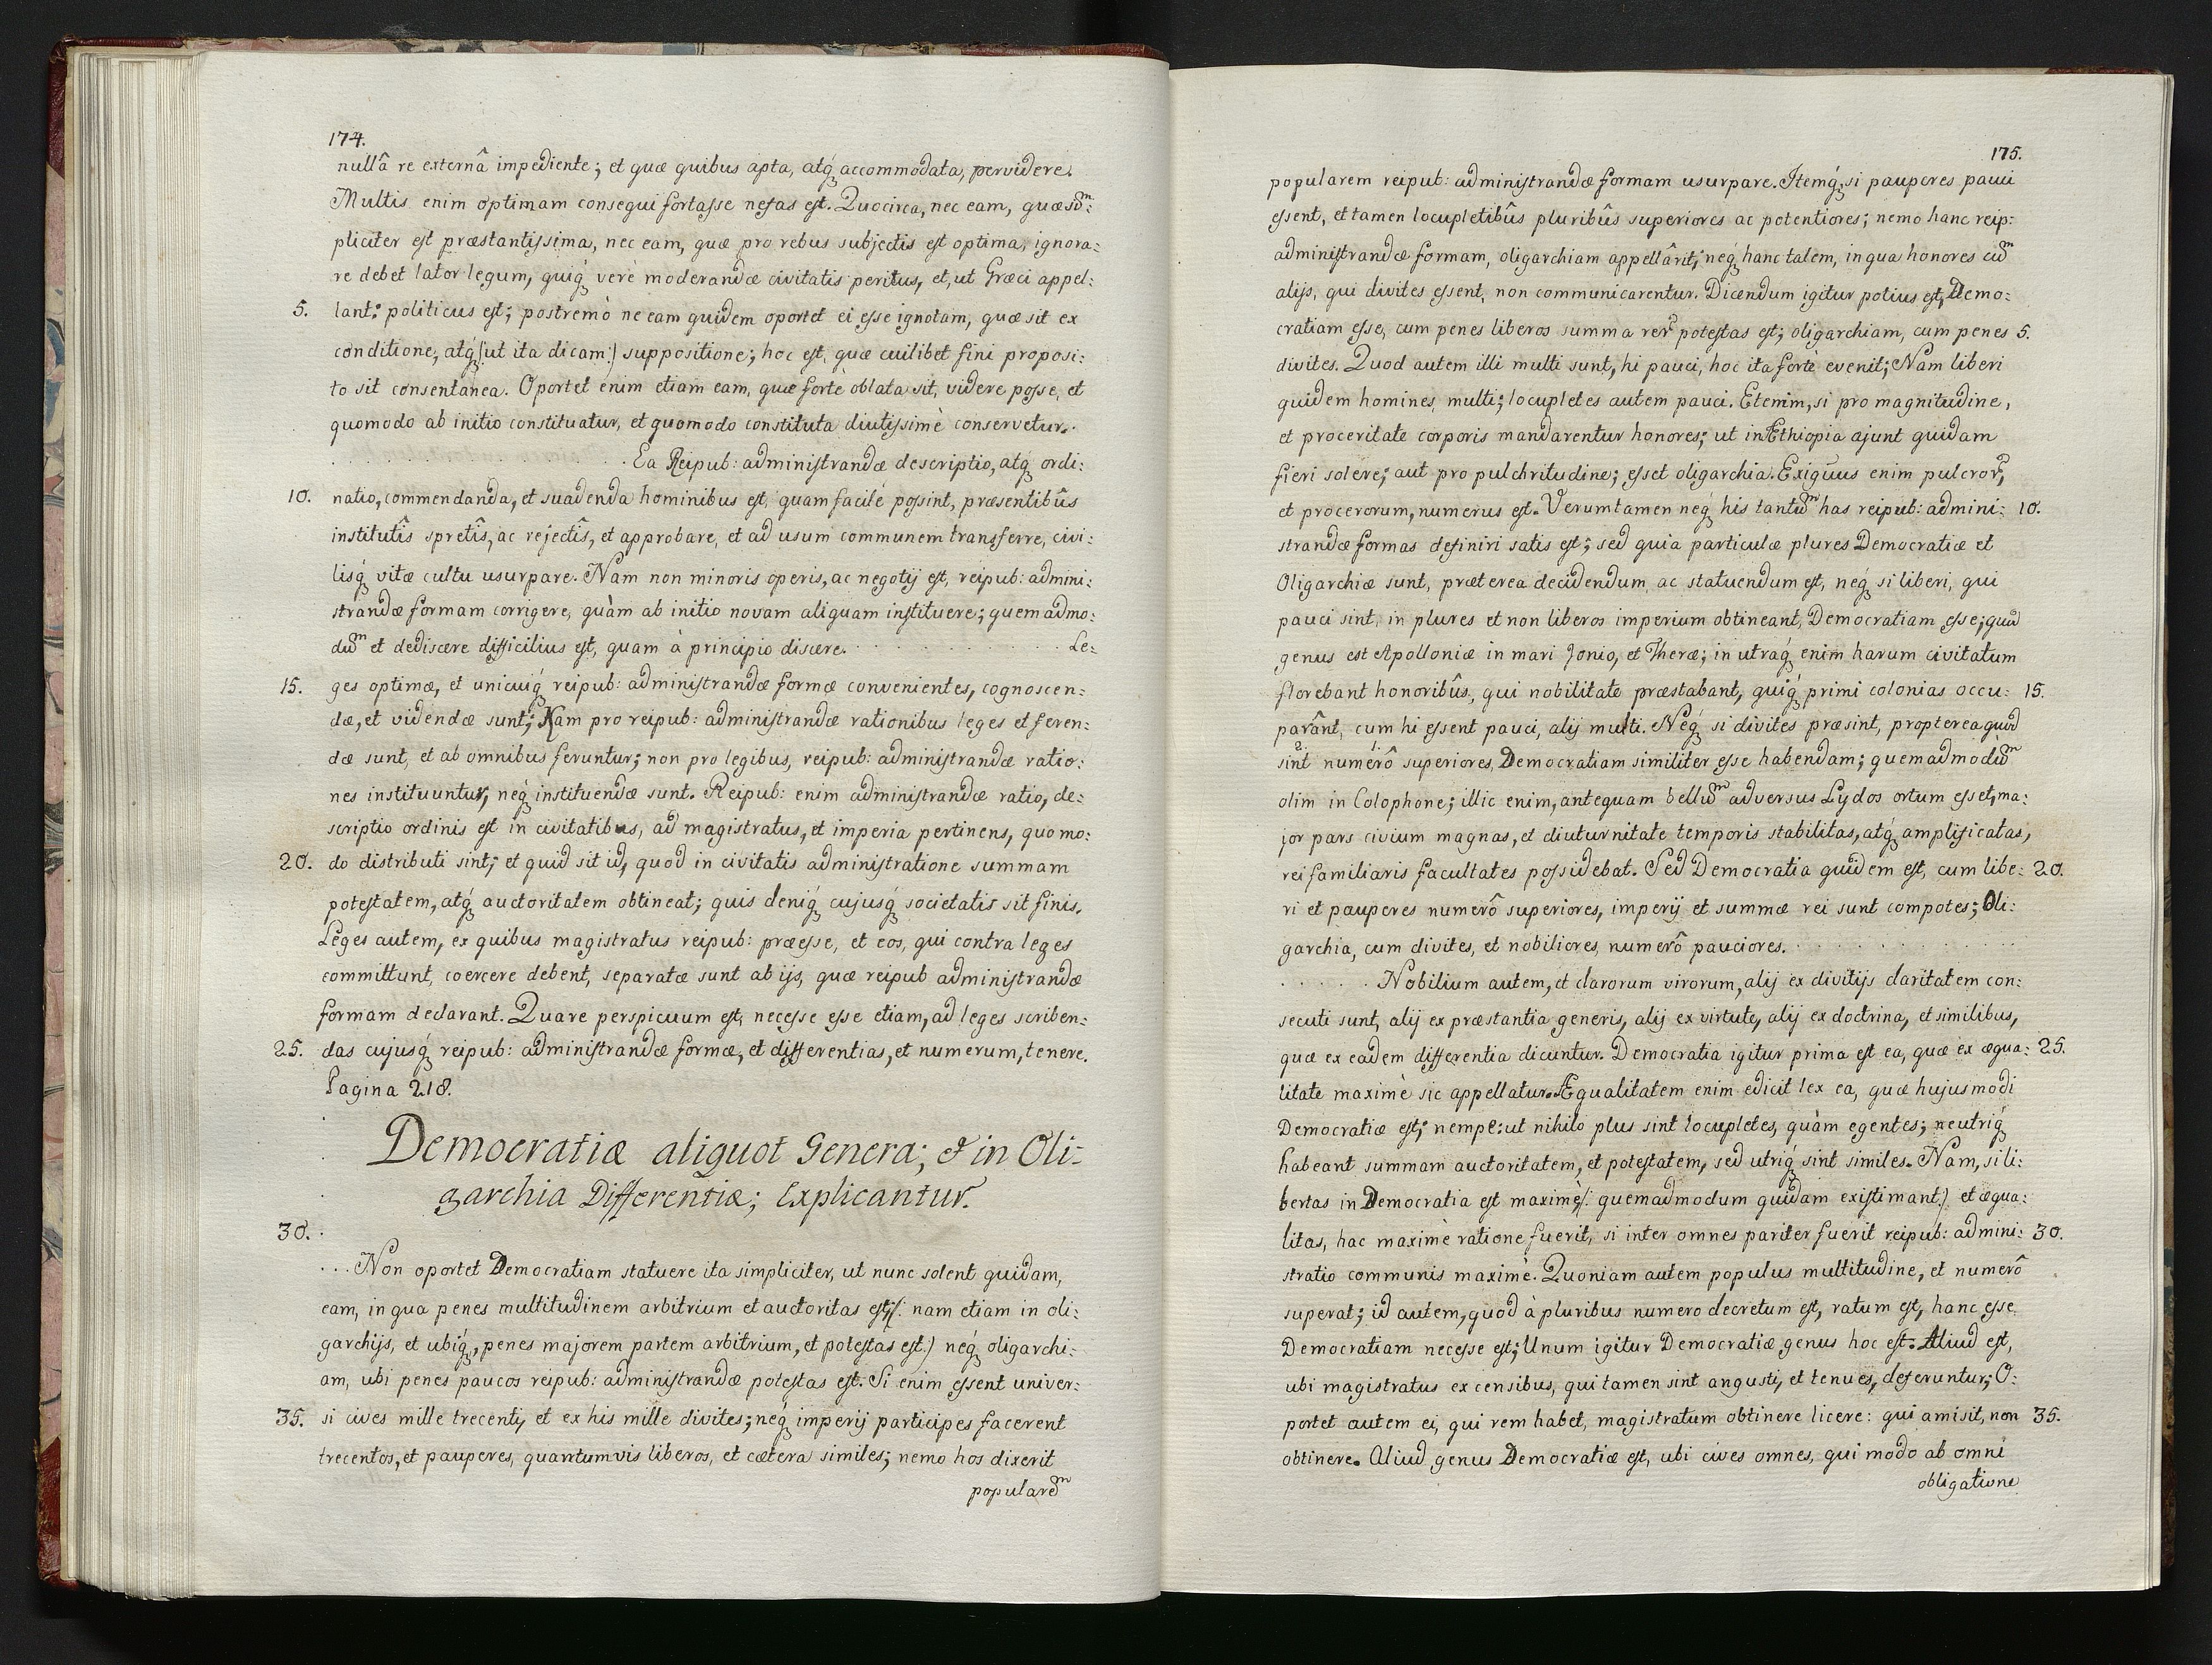 174.
nullâ re externâ impediente; et quæ quibus apta, atq́ accommodata, pervidere.
Multis enim optimam consequi fortasse nefas est. Quocirca, nec eam, quæ sim̄:
pliciter est præstantissima, nec eam, quæ pro rebus subjectis est optima, ignora:
re debet lator legum, quiq́ verè moderandæ civitatis peritus, et, ut Græci appel:
5. lant: politicus est; postremò ne eam quidem oportet ei esse ignotam, quæ sit ex
conditione, atq́ (:ut ita dicam:) suppositione; hoc est, quæ cuilibet fini proposi:
to sit consentanea. Oportet enim etiam eam, quæ fortè oblata sit, videre posse, et
quomodo ab initio constituatur, et quomodo constituta diutissimè conservetur.
. . . . . . . . . . Ea Reipub: administrandæ descriptio, atq́ ordi:
10. natio, commendanda, et suadenda hominibus est, quam facilè possint, præsentibûs
institutîs spretîs, ac rejectîs, et approbare, et ad usum communem transferre, civi:
lisq́ vitæ cultu usurpare. Nam non minoris operis, ac negotij est, reipub: admini:
strandæ formam corrigere, quàm ab initio novam aliquam instituere; quemadmo:
dum̄ et dediscere difficilius est, quam à principio discere. . . . . . . . . . . . Le:
15. ges optimæ, et unicuiq́ reipub: administrandæ formæ convenientes, cognoscen:
dæ, et videndæ sunt; Nam pro reipub: administrandæ rationibus leges et feren:
dæ sunt, et ab omnibus feruntur; non pro legibus, reipub: administrandæ ratio:
nes instituuntur, neq́ instituendæ sunt. Reipub: enim administrandæ ratio, de:
scriptio ordinis est in civitatibus, ad magistratus, et imperia pertinens, quo mo:
20. do distributi sint; et quid sit id, quod in civitatis administratione summam
potestatem, atq́ auctoritatem obtineat; quis deniq́ cujusq́ societatis sit finis.
Leges autem, ex quibus magistratus reipub: præesse, et eos, qui contra leges
committunt, coercere debent, separatæ sunt ab ijs, quæ reipub administrandæ
formam declarant. Quare perspicuum est, necesse esse etiam, ad leges scriben:
25. das cujusq́ reipub: administrandæ formæ, et differentias, et numerum, tenere.
Pagina 218.
Democratiæ aliquot Genera; & in Oli:
garchia Differentiæ; Explicantur.
30.
. . . Non oportet Democratiam statuere ita simpliciter, ut nunc solent quidam,
eam, in qua penes multitudinem arbitrium et auctoritas est; (: nam etiam in oli:
garchijs, et ubiq́, penes majorem partem arbitrium, et potestas est:) neq́ oligarchi:
am, ubi penes paucos reipub: administrandæ potestas est. Si enim essent univer:
35. si cives mille trecenti, et ex his mille divites; neq́ imperij participes facerent
trecentos, et pauperes, quantumvis liberos, et cætera similes; nemo hos dixerit
popularem̄
175.
popularem reipub: administrandæ formam usurpare. Itemq́, si pauperes pauci
essent, et tamen locupletibûs pluribûs superiores ac potentiores; nemo hanc reip:
administrandæ formam, oligarchiam appellârit; neq́ hanc talem, in qua honores cum̄
alijs, qui divites essent, non communicarentur. Dicendum igitur potius est, Demo:
cratiam esse, cum penes liberos summa rer̄ potestas est; oligarchiam, cum penes 5.
divites. Quod autem illi multi sunt, hi pauci, hoc ita fortè evenit; Nam liberi
quidem homines, multi; locupletes autem pauci. Etenim, si pro magnitudine,
et proceritate corporis mandarentur honores; ut in Æthiopia ajunt quidam
fieri solere; aut pro pulchritudine; esset oligarchia. Exiguus enim pulcror̄,
et procerorum, numerus est. Verumtamen neq́ his tantum̄ has reipub: admini: 10.
strandæ formas definiri satis est; sed quia particulæ plures Democratiæ et
Oligarchiæ sunt, præterea decidendum, ac statuendum est, neq́ si liberi, qui
pauci sint, in plures et non liberos imperium obtineant, Democratiam esse; quod
genus est Apolloniæ in mari Jonio, et Theræ; in utraq́ enim harum civitatum
florebant honoribûs, qui nobilitate præstabant, quiq́ primi colonias occu: 15.
parânt, cum hi essent pauci, alij multi. Neq́ si divites præsint, propterea quod
sint numerô superiores, Democratiam similiter esse habendam; quemadmodum̄
olim in Colophone; illic enim, antequam bellum̄ adversus Lydos ortum esset, ma:
jor pars civium magnas, et diuturnitate temporis stabilitas, atq́ amplificatas,
rei familiaris facultates possidebat. Sed Democratia quidem est, cum libe: 20.
ri et pauperes numerô superiores, imperij et summæ rei sunt compotes; Oli:
garchia, cum divites, et nobiliores, numerô pauciores. . . . . . . . . .
. . . . . Nobilium autem, et clarorum virorum, alij ex divitijs claritatem con:
secuti sunt, alij ex præstantia generis, alij ex virtute, alij ex doctrina, et similibus,
quæ ex eadem differentia dicuntur. Democratia igitur prima est ea, quæ ex æqua: 25.
litate maximè sic appellatur. Æqualitatem enim edicit lex ea, quæ hujusmodi
Democratiæ est; nempe: ut nihilo plus sint locupletes, quàm egentes; neutriq́
habeant summam auctoritatem, et potestatem, sed utriq́ sint similes. Nam, si li:
bertas in Democratia est maximè, (: quemadmodum quidam existimant:) et æqua:
litas, hac maximè ratione fuerit, si inter omnes pariter fuerit reipub: admini: 30.
stratio communis maximè. Quoniam autem populus multitudine, et numerô
superat; id autem, quod à pluribus numero decretum est, ratum est, hanc esse
Democratiam necesse est; Unum igitur Democratiæ genus hoc est. Aliud est,
ubi magistratus ex censibus, qui tamen sint angusti, et tenues, deferuntur; O:
portet autem ei, qui rem habet, magistratum obtinere licere: qui amisit, non 35.
obtinere. Aliud genus Democratiæ est, ubi cives omnes, qui modo ab omni
obligatione